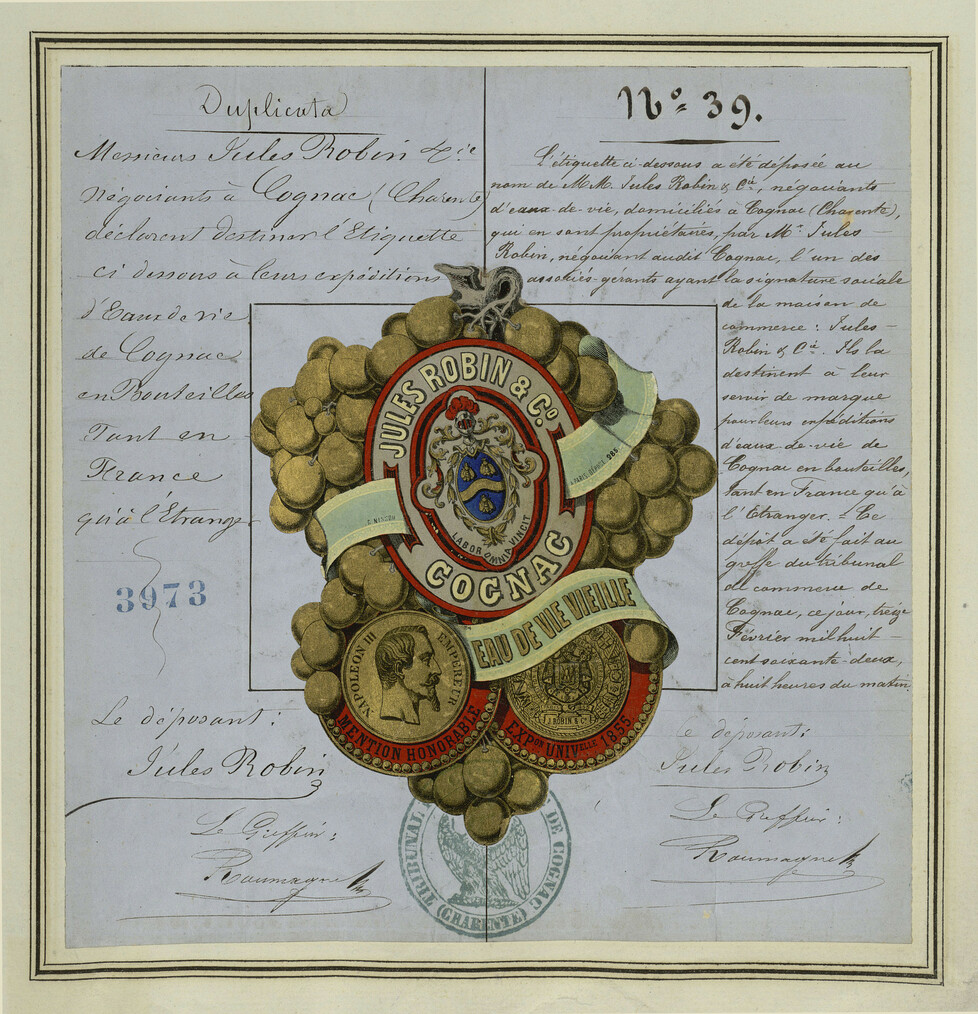 Duplicata
Messieurs Jules Robin & Cie
Négociants à Cognac (Charente)
déclarent destiner l'Etiquette
ci dessous à leurs expéditions
d'Eaux de vie
de Cognac
en Bouteilles
Tant en
France
qu'à l'Etranger
3973
Le déposant :
Jules Robin
Le Greffier :
Roumagne
No 39.
L'étiquette ci-dessous a été déposée au
nom de M.M. Jules Robin & Cie, négociants
d'eaux-de-vie, domiciliés à Cognac (Charente),
qui en sont propriétaires, par Mr. Jules
Robin, négociant audit Cognac, l'un des
associés-gérants ayant la signature sociale
de la maison de
commerce : Jules
Robin & Cie. Ils la
destinent à leur
servir de marque
pour leurs expéditions
d'eaux-de-vie de
Cognac en bouteilles,
tant en France qu'à
l'Etranger. - Ce
dépôt a été fait au
greffe du tribunal
de commerce de
Cognac, ce jour, treize
Février mil huit
cent soixante-deux,
à huit heures du matin.
Le déposant :
Jules Robin
Le Greffier :
Roumagne
JULES ROBIN & Co.
LABOR OMNIA VINCIT
COGNAC
A PARIS DÉPOSÉ 986
EAU DE VIE VIEILLE
NAPOLEON III EMPEREUR
MENTION HONORABLE
J. ROBIN & Co
EXPon UNIVelle 1855
TRIBUNAL DE COGNAC
(CHARENTE)